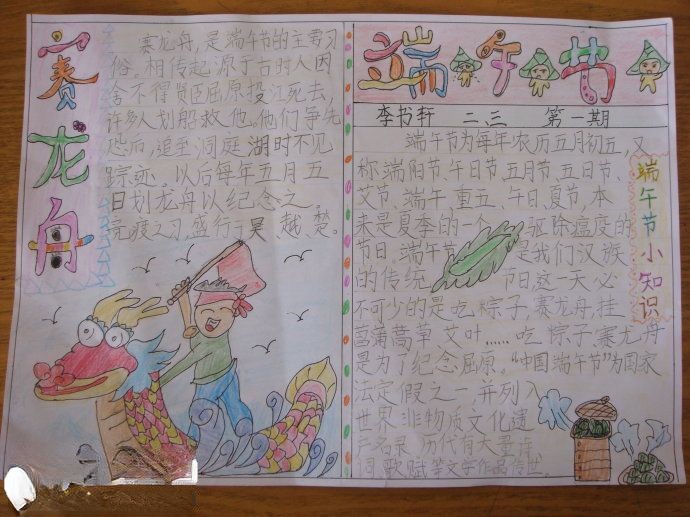 赛龙舟
赛龙舟,是端午节的主要习
俗。相传起源于古时人因
舍不得贤臣屈原投江死去,
许多人划船救他。他们争先
恐后,追至洞庭湖时不见
踪迹。以后每年五月五
日划龙舟以纪念之。
竞渡之习,盛行于吴、越、楚。
端午节
李书轩 二.三 第一期
端午节为每年农历五月初五,又
称端阳节、午日节、五月节、五日节、
艾节、端午、重五、午日、夏节,本
来是夏季的一个 驱除瘟疫的
节日,端午节 是我们汉族
的传统 节日,这一天必
不可少的是吃粽子,赛龙舟,挂
菖蒲蒿草艾叶……吃粽子赛龙舟
是为了纪念屈原。“中国端午节”为国家
法定假之一并列入
世界非物质文化遗
名录 历代有大量诗
词歌赋等文学作品传世。
端午节小知识